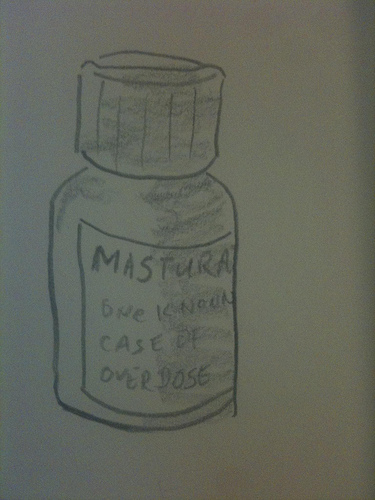 MASTURA
ONE KNOWN
CASE OF
OVERDOSE